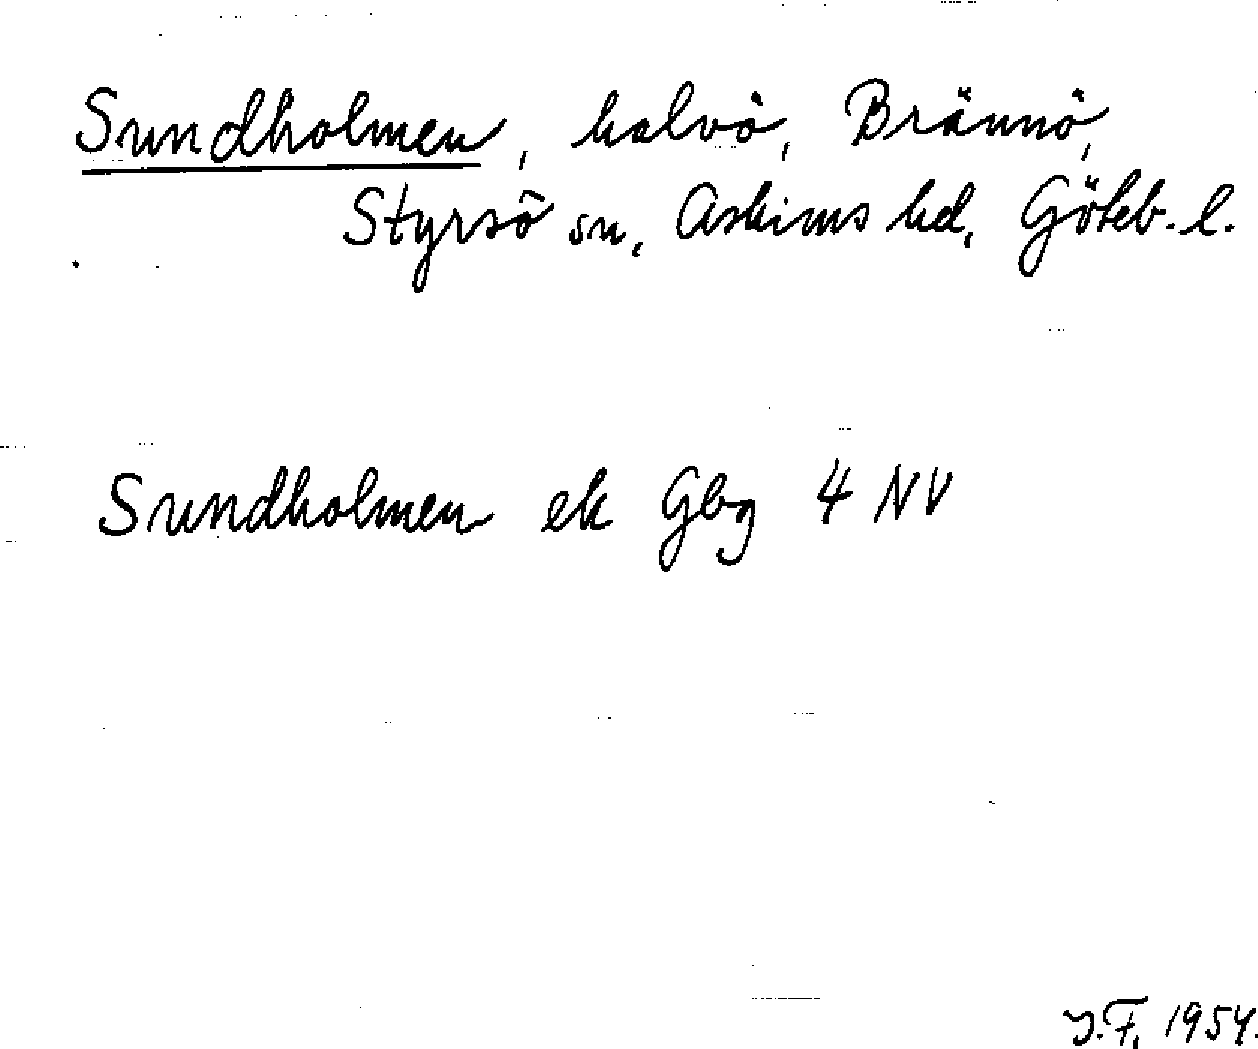 Sundholmen, halvö, Brännö,
Styrsö sn, Askims hd, Göteb. l.
Sundholmen ek Gbg 4 NV
J.F. 1954.